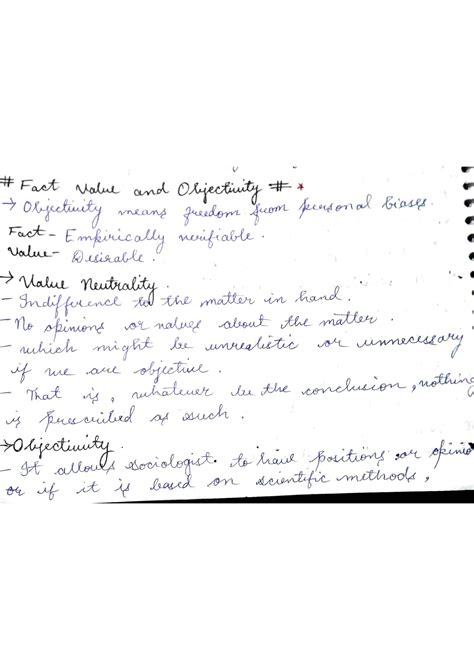 # Fact Value and Objectivity # *
→ Objectivity means freedom from personal biases.
Fact - Empirically verifiable.
Value - Desirable.
→ Value Neutrality.
- Indifference to the matter in hand.
- No opinions or values about the matter.
- which might be unrealistic or unnecessary
if we are objective.
- That is, whatever be the conclusion, nothing
is prescribed as such.
→ Objectivity.
- It allows sociologist to have positions or opinio
or if it is based on scientific methods,